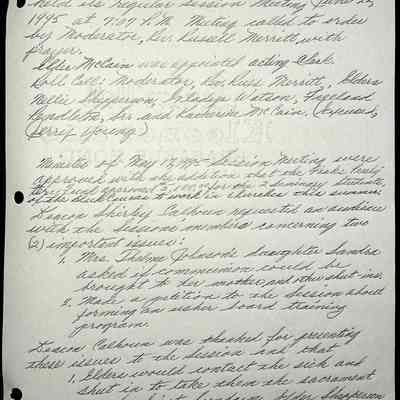 held its regular Session Meeting June
1995 at 7:07 P.M. Meeting called to order
by Moderator, Rev. Russell Merritt, with
prayer.
Elder McCain was appointed acting Clerk.
Roll Call: Moderator, Rev. Russ Merritt, Elders
Nettie Shepperson, Gladys Watson, Freeland
Pendleton, Sr. and Katherine McCain. (Excused,
Jerry Young.)
Minutes of May 17, 1995 Session Meeting were
approved with the addition that the
approved for the 2 Seminary Students,
to work in churches this summer.
Deacon Shirley Calhoun requested an audience
with the Session members concerning two
(2) important issues:
1. Mrs. Thelma Johnson's daughter Sandra
asked if communion could be
brought to her mother, and other shut ins.
2. Made a petition to the Session about
forming an usher board training
program.
Deacon Calhoun was thanked for presenting
these issues to the Session and that
1. Elders would contact the sick and
shut in to take them the sacrament
Elder Shepperson